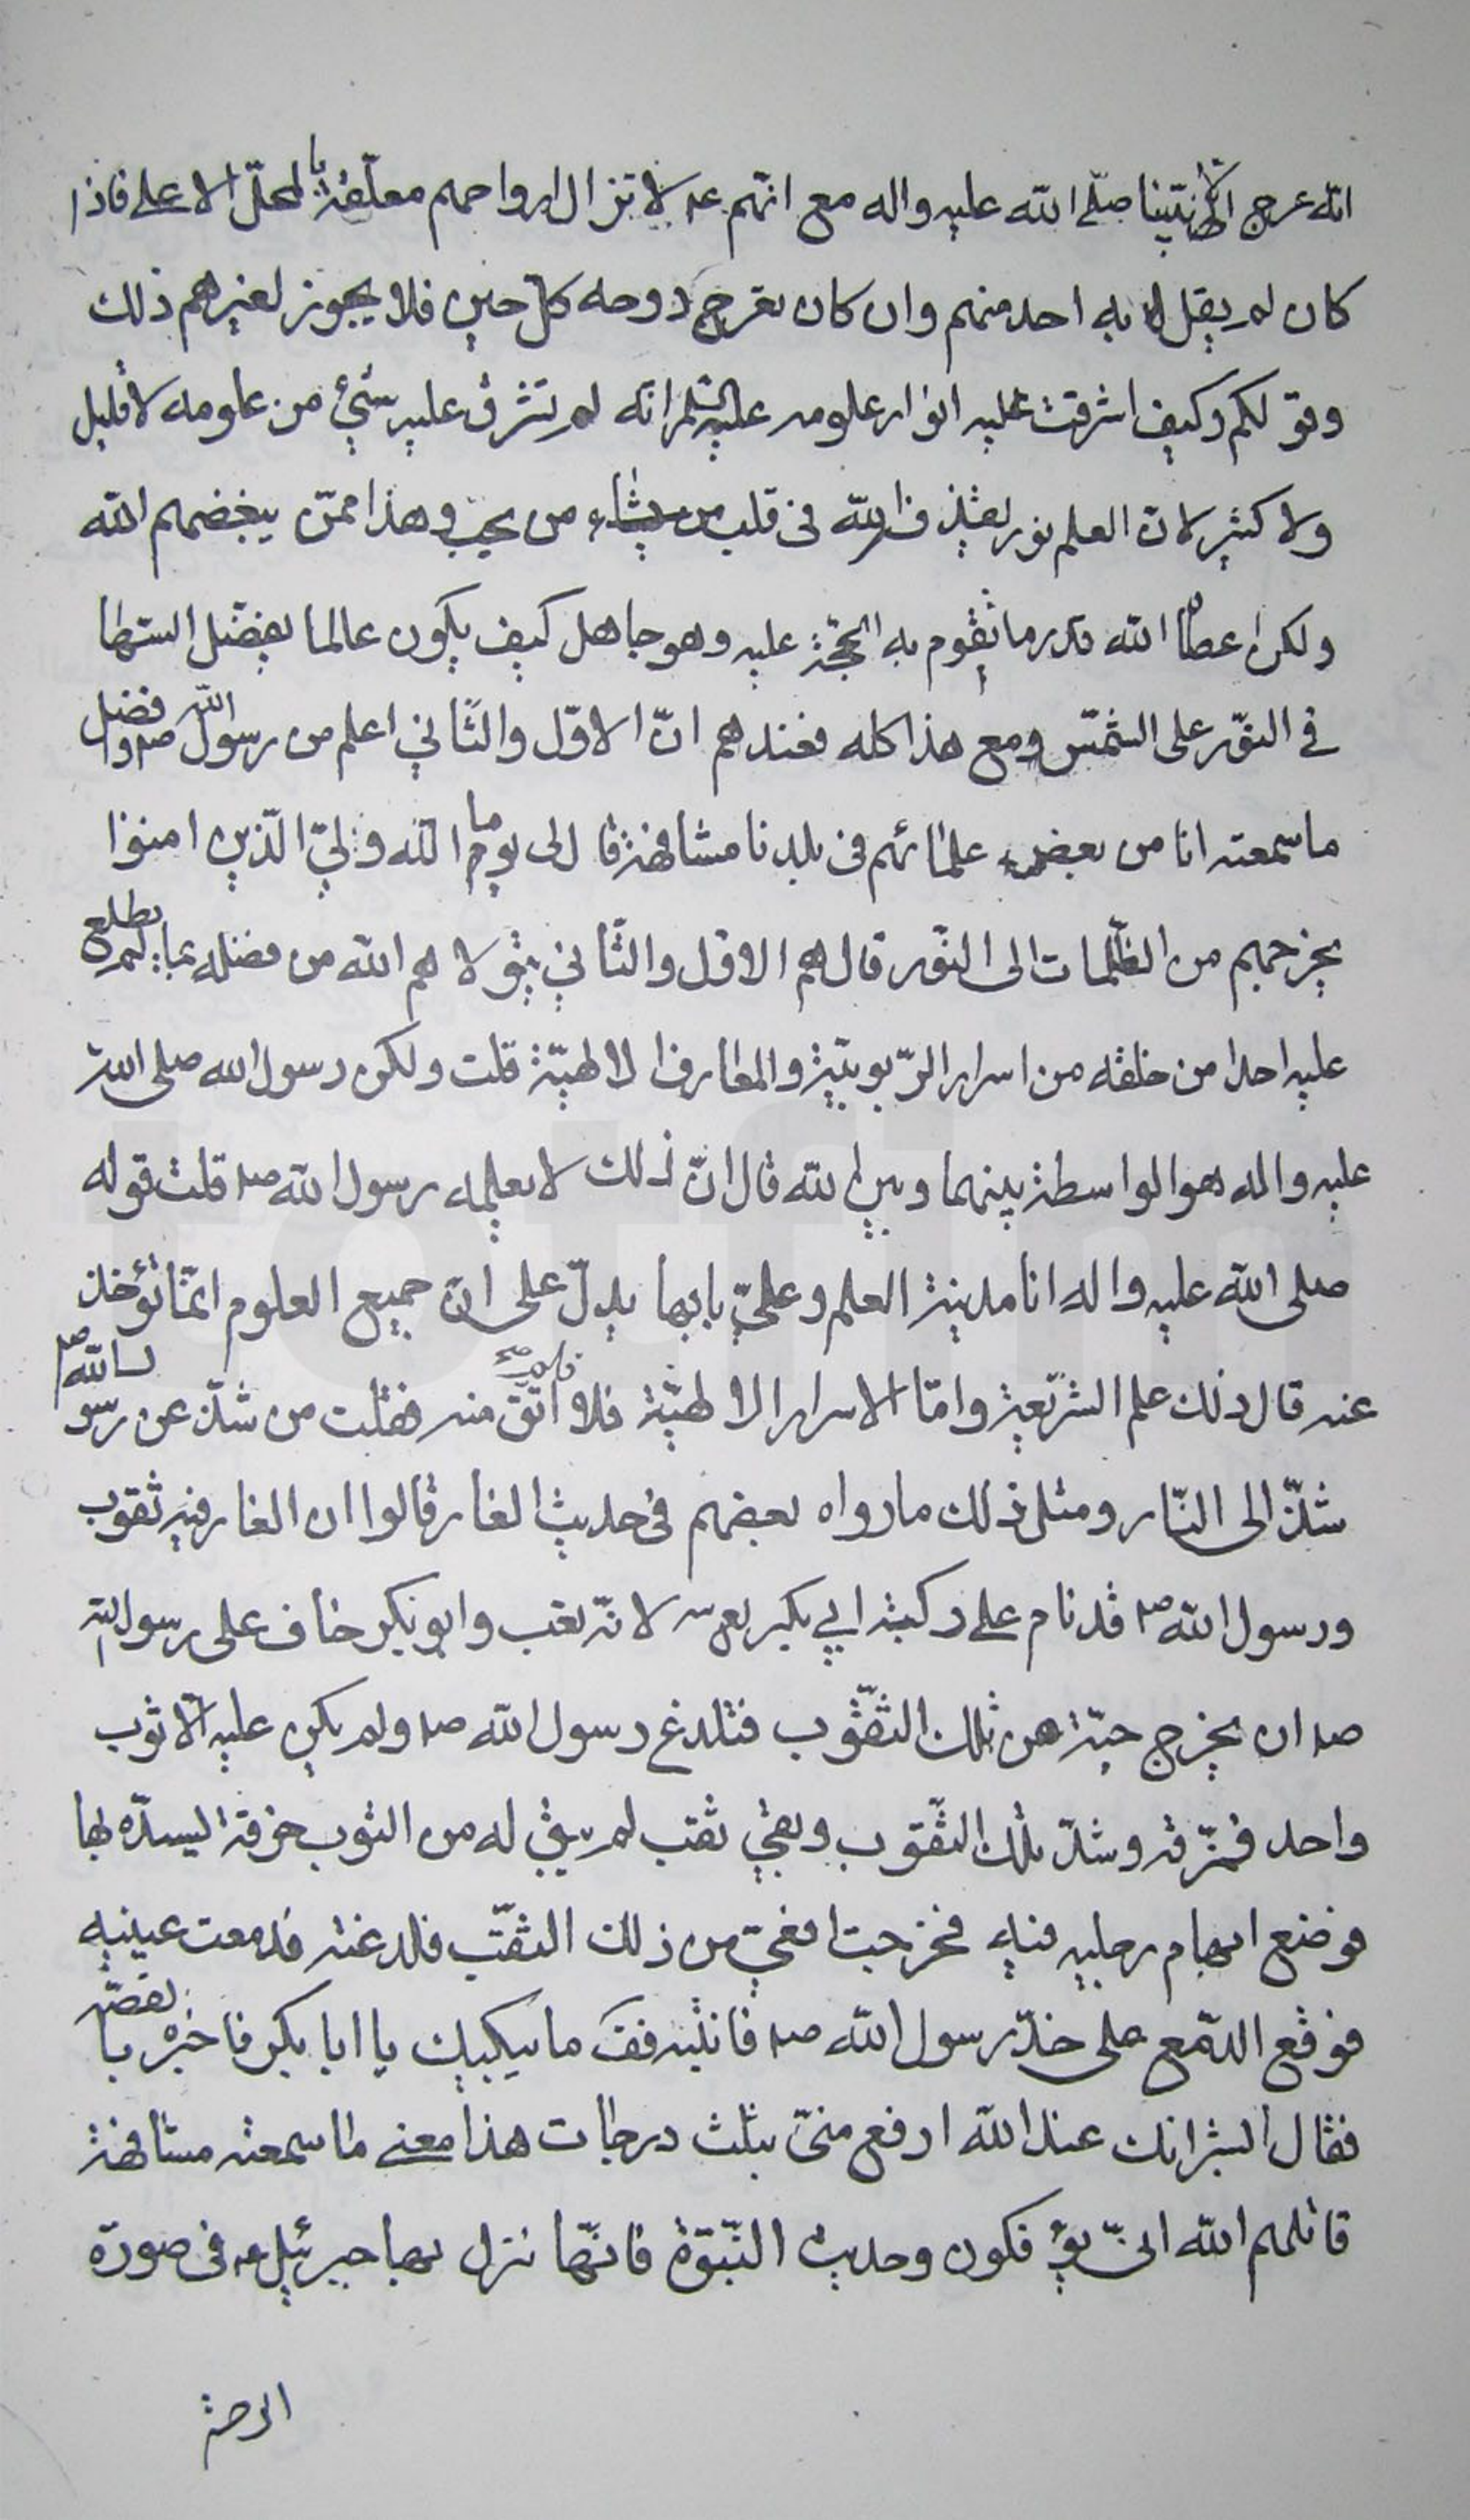 انه عرج الا نبينا صلى الله عليه واله مع انهم عم لا تزال ارواحهم معلقة بالمحل الاعلى فاذا
كان لم يقل به احد منهم وان كان تعرج روحه كل حين فلا يجوز لغيرهم ذلك
وقولكم وكيف اشرقت عليه انوار علومه عليه السلم انه لم تشرق عليه شيء من علومه لا قليل
ولا كثير لان العلم نور يقذفه الله في قلب من يحب وهذا ممن يبغضهم الله
ولكن اعطاه الله قدر ما تقوم به الحجة عليه وهو جاهل كيف يكون عالما يفضل السها
في النور على الشمس ومع هذا كله فعندهم ان الاول والثاني اعلم من رسول الله صم وافضل
ما سمعته انا من بعض علمائهم في بلدنا مشافهة قال لي يوما الله ولي الذين امنوا
يخرجهم من الظلمات الى النور قال هم الاول والثاني تولاهم الله من فضله بما لم يطلع
عليه احدا من خلقه من اسرار الربوبية والمعارف الالهية قلت ولكن رسول الله صلى الله
عليه واله هو الواسطة بينهما وبين الله قال ان ذلك لا يعلمه رسول الله صم قلت قوله
صلى الله عليه واله انا مدينة العلم وعلي بابها يدل على ان جميع العلوم انما تؤخذ
عنه قال ذلك علم الشريعة واما الاسرار الالهية فلا منه فقلت من شذ عن رسول الله صم
شذ الى النار ومثل ذلك ما رواه بعضهم في حديث الغار قالوا ان الغار فيه ثقوب
ورسول الله صم قد نام على ركبة ابي بكر لانه تعب وابو بكر خاف على رسول الله
صم ان يخرج حية من تلك الثقوب فتلدغ رسول الله صم ولم يكن عليه الا ثوب
واحد فمزقه وشد تلك الثقوب وبقي ثقب لم يبق له من الثوب خرقة ليسده بها
فوضع ابهام رجليه فيه فخرجت افعى من ذلك الثقب فلدغته فدمعت عينيه
فوقع الدمع على خد رسول الله صم فانتبه فقـ ما يبكيك يا ابا بكر فاخبره بالقصة
فقال ابشر انك عند الله ارفع مني بثلث درجات هذا معنى ما سمعته مشافهة
قاتلهم الله انى يؤفكون وحديث النبوة فانها نزل بها جبرئيل عم في صورة